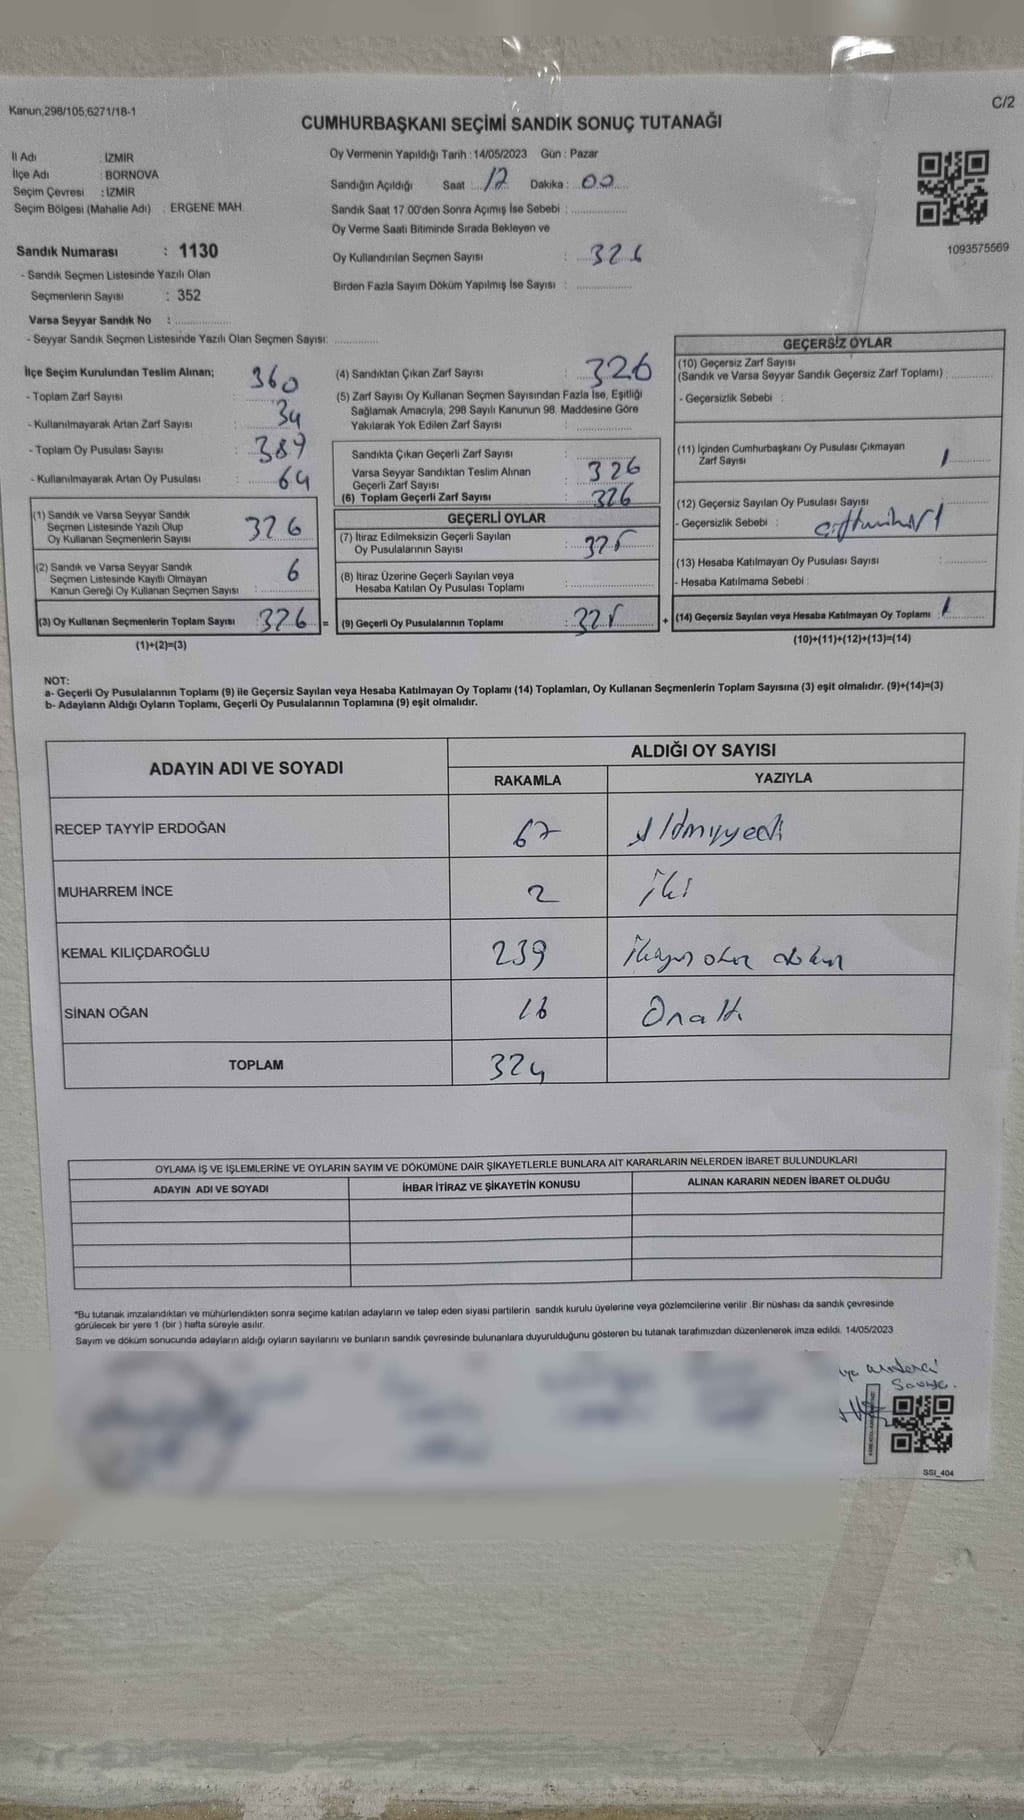 Kanun,298/105,6271/18-1
C/2
CUMHURBAŞKANI SEÇİMİ SANDIK SONUÇ TUTANAĞI
İl Adı : İZMİR
İlçe Adı : BORNOVA
Seçim Çevresi : İZMİR
Seçim Bölgesi (Mahalle Adı) : ERGENE MAH.
Sandık Numarası : 1130
- Sandık Seçmen Listesinde Yazılı Olan
Seçmenlerin Sayısı : 352
Varsa Seyyar Sandık No :
- Seyyar Sandık Seçmen Listesinde Yazılı Olan Seçmen Sayısı:
Oy Vermenin Yapıldığı Tarih : 14/05/2023 Gün : Pazar
Sandığın Açıldığı Saat 17 Dakika : 00
Sandık Saat 17.00'den Sonra Açımış İse Sebebi :
Oy Verme Saati Bitiminde Sırada Bekleyen ve
Oy Kullandırılan Seçmen Sayısı : 326
Birden Fazla Sayım Döküm Yapılmış İse Sayısı :
1093575569
İlçe Seçim Kurulundan Teslim Alınan;
- Toplam Zarf Sayısı : 360
- Kullanılmayarak Artan Zarf Sayısı : 34
- Toplam Oy Pusulası Sayısı : 389
- Kullanılmayarak Artan Oy Pusulası : 64
(1) Sandık ve Varsa Seyyar Sandık
Seçmen Listesinde Yazılı Olup
Oy Kullanan Seçmenlerin Sayısı 326
(2) Sandık ve Varsa Seyyar Sandık
Seçmen Listesinde Kayıtlı Olmayan
Kanun Gereği Oy Kullanan Seçmen Sayısı : 6
(3) Oy Kullanan Seçmenlerin Toplam Sayısı : 326 =
(1)+(2)=(3)
(4) Sandıktan Çıkan Zarf Sayısı : 326
(5) Zarf Sayısı Oy Kullanan Seçmen Sayısından Fazla İse, Eşitliği
Sağlamak Amacıyla, 298 Sayılı Kanunun 98. Maddesine Göre
Yakılarak Yok Edilen Zarf Sayısı :
Sandıkta Çıkan Geçerli Zarf Sayısı :
Varsa Seyyar Sandıktan Teslim Alınan
Geçerli Zarf Sayısı : 326
(6) Toplam Geçerli Zarf Sayısı : 326
GEÇERLİ OYLAR
(7) İtiraz Edilmeksizin Geçerli Sayılan
Oy Pusulalarının Sayısı : 325
(8) İtiraz Üzerine Geçerli Sayılan veya
Hesaba Katılan Oy Pusulası Toplamı :
(9) Geçerli Oy Pusulalarının Toplamı : 325 +
GEÇERSİZ OYLAR
(10) Geçersiz Zarf Sayısı
(Sandık ve Varsa Seyyar Sandık Geçersiz Zarf Toplamı) :
- Geçersizlik Sebebi :
(11) İçinden Cumhurbaşkanı Oy Pusulası Çıkmayan
Zarf Sayısı 1
(12) Geçersiz Sayılan Oy Pusulası Sayısı :
- Geçersizlik Sebebi :
(13) Hesaba Katılmayan Oy Pusulası Sayısı :
- Hesaba Katılmama Sebebi :
(14) Geçersiz Sayılan veya Hesaba Katılmayan Oy Toplamı : 1
(10)+(11)+(12)+(13)=(14)
NOT:
a- Geçerli Oy Pusulalarının Toplamı (9) ile Geçersiz Sayılan veya Hesaba Katılmayan Oy Toplamı (14) Toplamları, Oy Kullanan Seçmenlerin Toplam Sayısına (3) eşit olmalıdır. (9)+(14)=(3)
b- Adayların Aldığı Oyların Toplamı, Geçerli Oy Pusulalarının Toplamına (9) eşit olmalıdır.
ADAYIN ADI VE SOYADI ALDIĞI OY SAYISI
RAKAMLA YAZIYLA
RECEP TAYYİP ERDOĞAN 67 Altmışyedi
MUHARREM İNCE 2 İki
KEMAL KILIÇDAROĞLU 239 ikiyüz otuz dokuz
SİNAN OĞAN 16 Onaltı
TOPLAM 324
OYLAMA İŞ VE İŞLEMLERİNE VE OYLARIN SAYIM VE DÖKÜMÜNE DAİR ŞİKAYETLERLE BUNLARA AİT KARARLARIN NELERDEN İBARET BULUNDUKLARI
ADAYIN ADI VE SOYADI İHBAR İTİRAZ VE ŞİKAYETİN KONUSU ALINAN KARARIN NEDEN İBARET OLDUĞU
*Bu tutanak imzalandıktan ve mühürlendikten sonra seçime katılan adayların ve talep eden siyasi partilerin sandık kurulu üyelerine veya gözlemcilerine verilir .Bir nüshası da sandık çevresinde
görülecek bir yere 1 (bir ) hafta süreyle asılır.
Sayım ve döküm sonucunda adayların aldığı oyların sayılarını ve bunların sandık çevresinde bulunanlara duyurulduğunu gösteren bu tutanak tarafımızdan düzenlenerek imza edildi. 14/05/2023
SSI_404